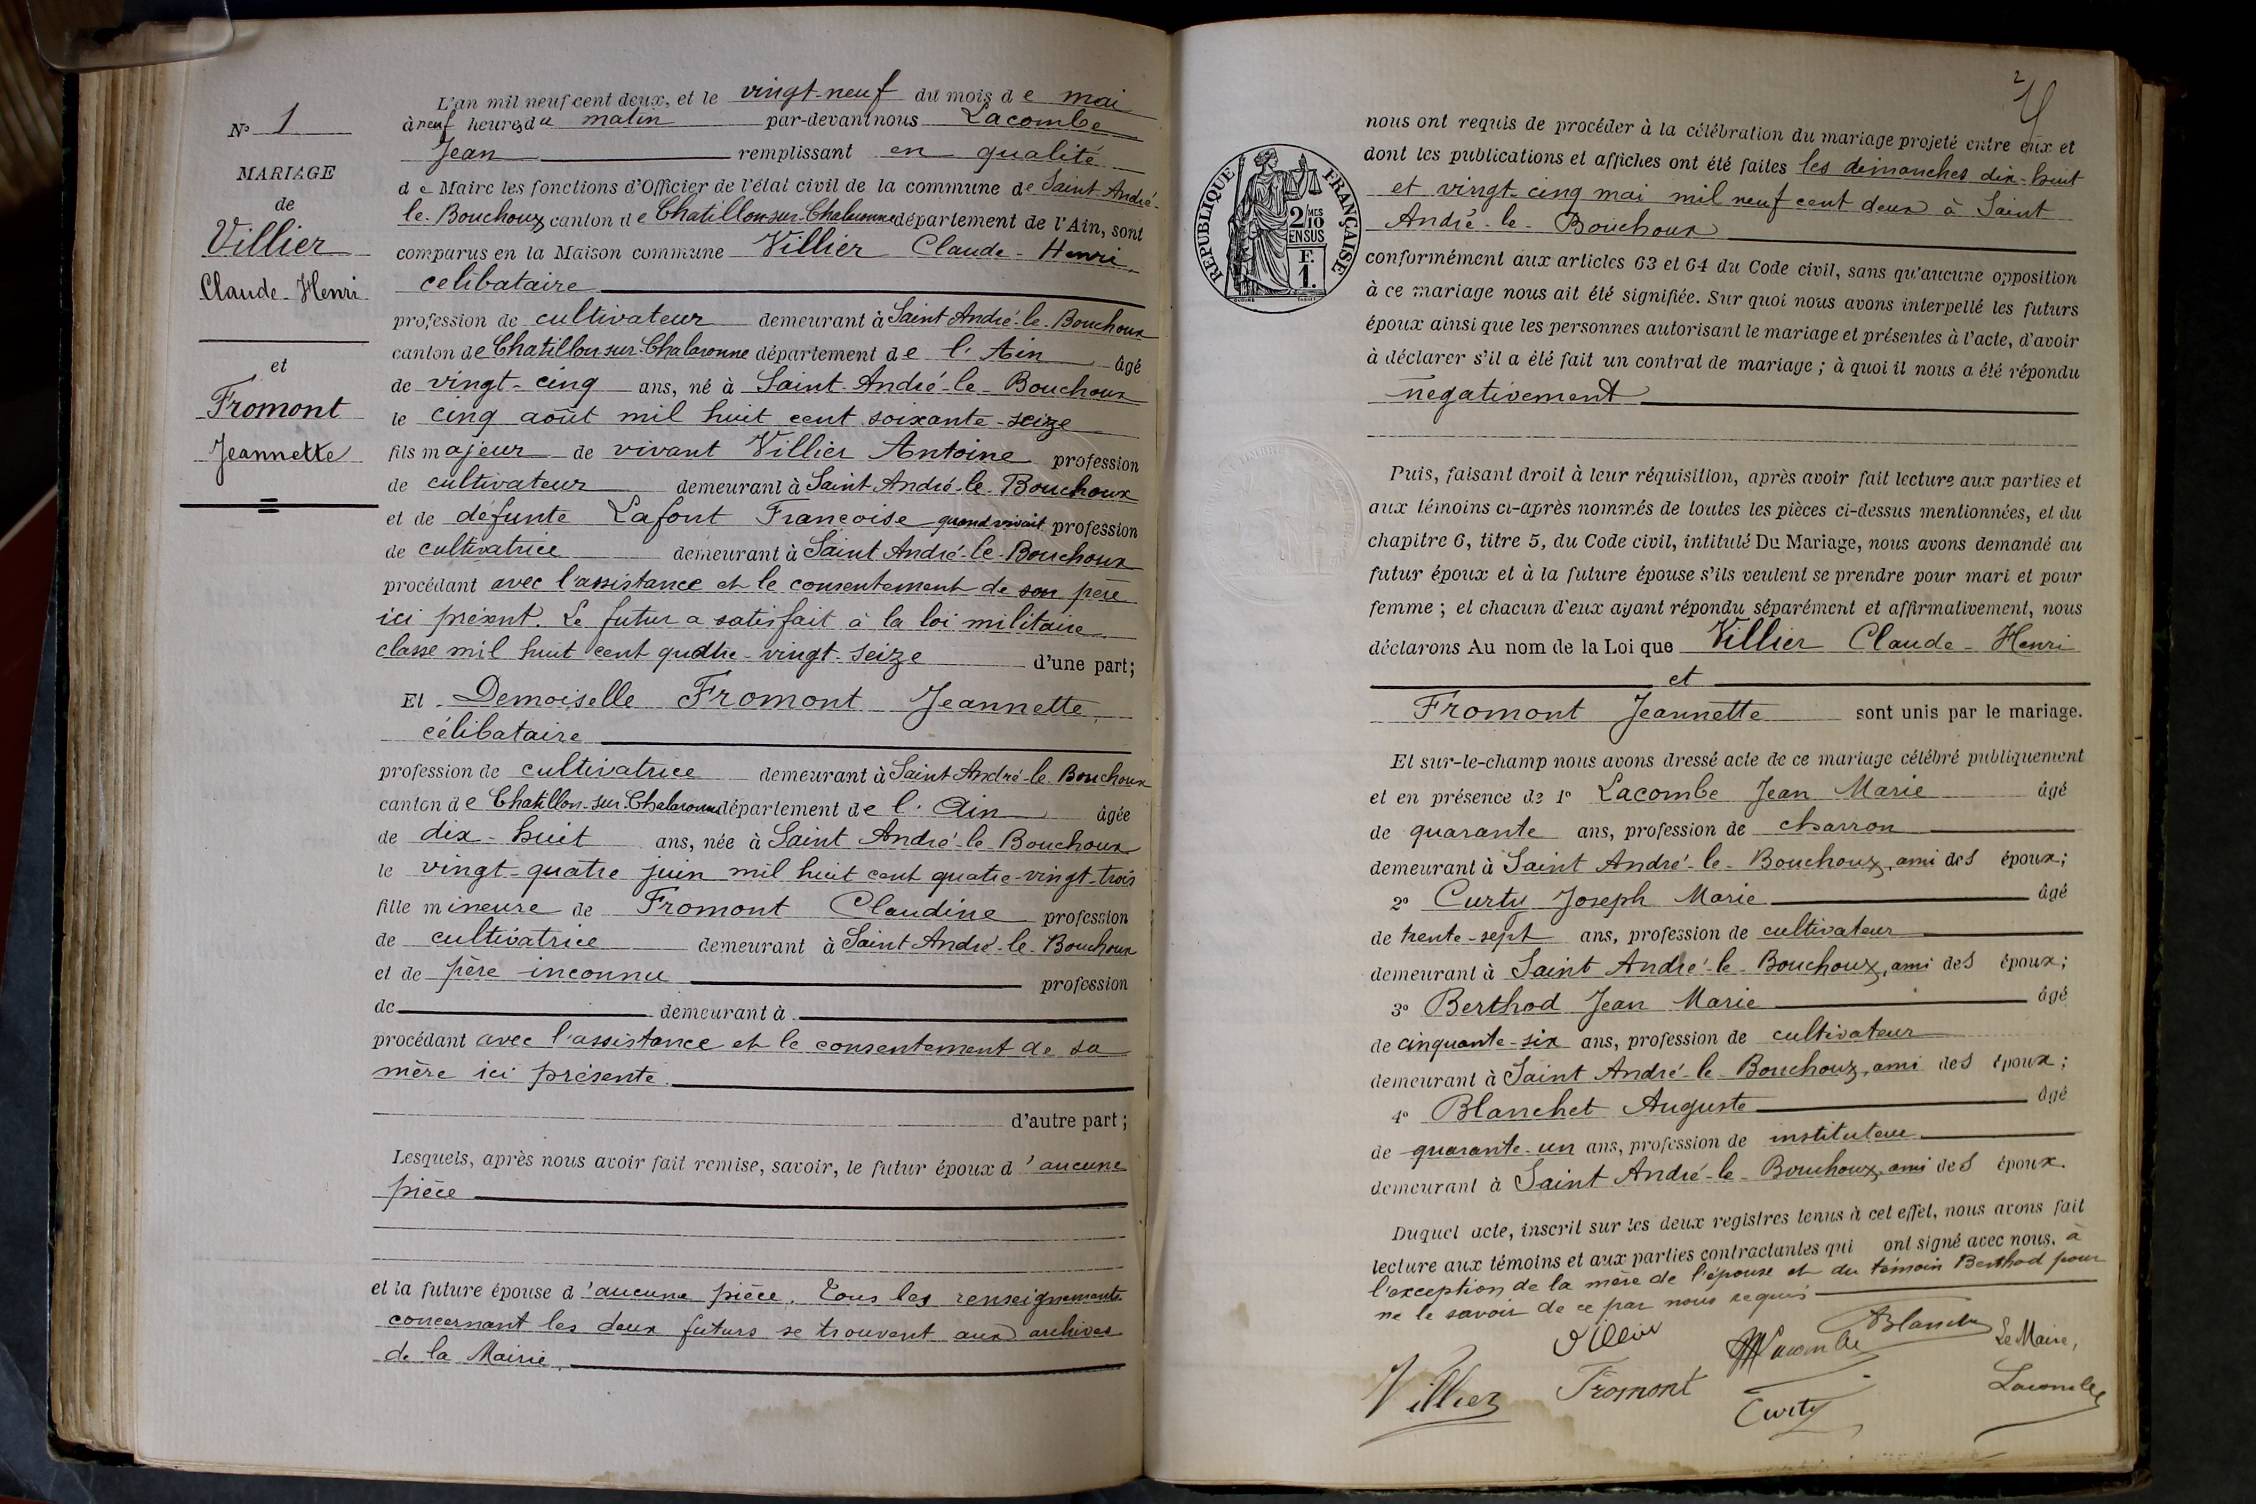 N° 1
MARIAGE
de
Villier
Claude-Henri
et
Fromont
Jeannette
L'an mil neuf cent deux, et le vingt-neuf du mois de mai
à neuf heures du matin par-devant nous Lacombe
Jean remplissant en qualité
de Maire les fonctions d'Officier de l'état civil de la commune de Saint-André-
le-Bouchoux canton de Chatillon-sur-Chalaronne département de l'Ain, sont
comparus en la Maison commune Villier Claude-Henri
célibataire
profession de cultivateur demeurant à Saint André-le-Bouchoux
canton de Chatillon sur-Chalaronne département de l'Ain âgé
de vingt-cinq ans, né à Saint-André-le-Bouchoux
le cinq août mil huit cent soixante-seize
fils majeur de vivant Villier Antoine profession
de cultivateur demeurant à Saint-André-le-Bouchoux
et de défunte Lafont Françoise quand vivait profession
de cultivatrice demeurant à Saint André-le-Bouchoux
procédant avec l'assistance et le consentement de son père
ici présent. Le futur a satisfait à la loi militaire
classe mil huit cent quatre-vingt-seize d'une part;
Et Demoiselle Fromont Jeannette,
célibataire
profession de cultivatrice demeurant à Saint André-le-Bouchoux
canton de Chatillon-sur-Chalaronne département de l'Ain âgée
de dix-huit ans, née à Saint André-le-Bouchoux
le vingt-quatre juin mil huit cent quatre-vingt-trois
fille mineure de Fromont Claudine profession
de cultivatrice demeurant à Saint André-le-Bouchoux
et de père inconnu profession
de demeurant à
procédant avec l'assistance et le consentement de sa
mère ici présente.
d'autre part;
Lesquels, après nous avoir fait remise, savoir, le futur époux d'aucune
pièce
et la future épouse d'aucune pièce. Tous les renseignements
concernant les deux futurs se trouvent aux archives
de la Mairie.
2
RÉPUBLIQUE FRANÇAISE
2/10 MES
EN SUS
F.
1.
nous ont requis de procéder à la célébration du mariage projeté entre eux et
dont les publications et affiches ont été faites les dimanches dix-huit
et vingt-cinq mai mil neuf cent deux à Saint
André-le-Bouchoux
conformément aux articles 63 et 64 du Code civil, sans qu'aucune opposition
à ce mariage nous ait été signifiée. Sur quoi nous avons interpellé les futurs
époux ainsi que les personnes autorisant le mariage et présentes à l'acte, d'avoir
à déclarer s'il a été fait un contrat de mariage; à quoi il nous a été répondu
négativement
Puis, faisant droit à leur réquisition, après avoir fait lecture aux parties et
aux témoins ci-après nommés de toutes les pièces ci-dessus mentionnées, et du
chapitre 6, titre 5, du Code civil, intitulé Du Mariage, nous avons demandé au
futur époux et à la future épouse s'ils veulent se prendre pour mari et pour
femme; et chacun d'eux ayant répondu séparément et affirmativement, nous
déclarons Au nom de la Loi que Villier Claude-Henri
et
Fromont Jeannette sont unis par le mariage.
Et sur-le-champ nous avons dressé acte de ce mariage célébré publiquement
et en présence de 1° Lacombe Jean Marie âgé
de quarante ans, profession de charron
demeurant à Saint André-le-Bouchoux, ami des époux;
2° Curty Joseph Marie âgé
de trente-sept ans, profession de cultivateur
demeurant à Saint André-le-Bouchoux, ami des époux;
3° Berthod Jean Marie âgé
de cinquante-six ans, profession de cultivateur
demeurant à Saint André-le-Bouchoux, ami des époux;
4° Blanchet Auguste âgé
de quarante-un ans, profession de instituteur
demeurant à Saint André-le-Bouchoux, ami des époux.
Duquel acte, inscrit sur les deux registres tenus à cet effet, nous avons fait
lecture aux témoins et aux parties contractantes qui ont signé avec nous, à
l'exception de la mère de l'épouse et du témoin Berthod pour
ne le savoir de ce par nous requis
Villier Lacombe Blanchet Le Maire,
Villier Fromont Curty Lacombe